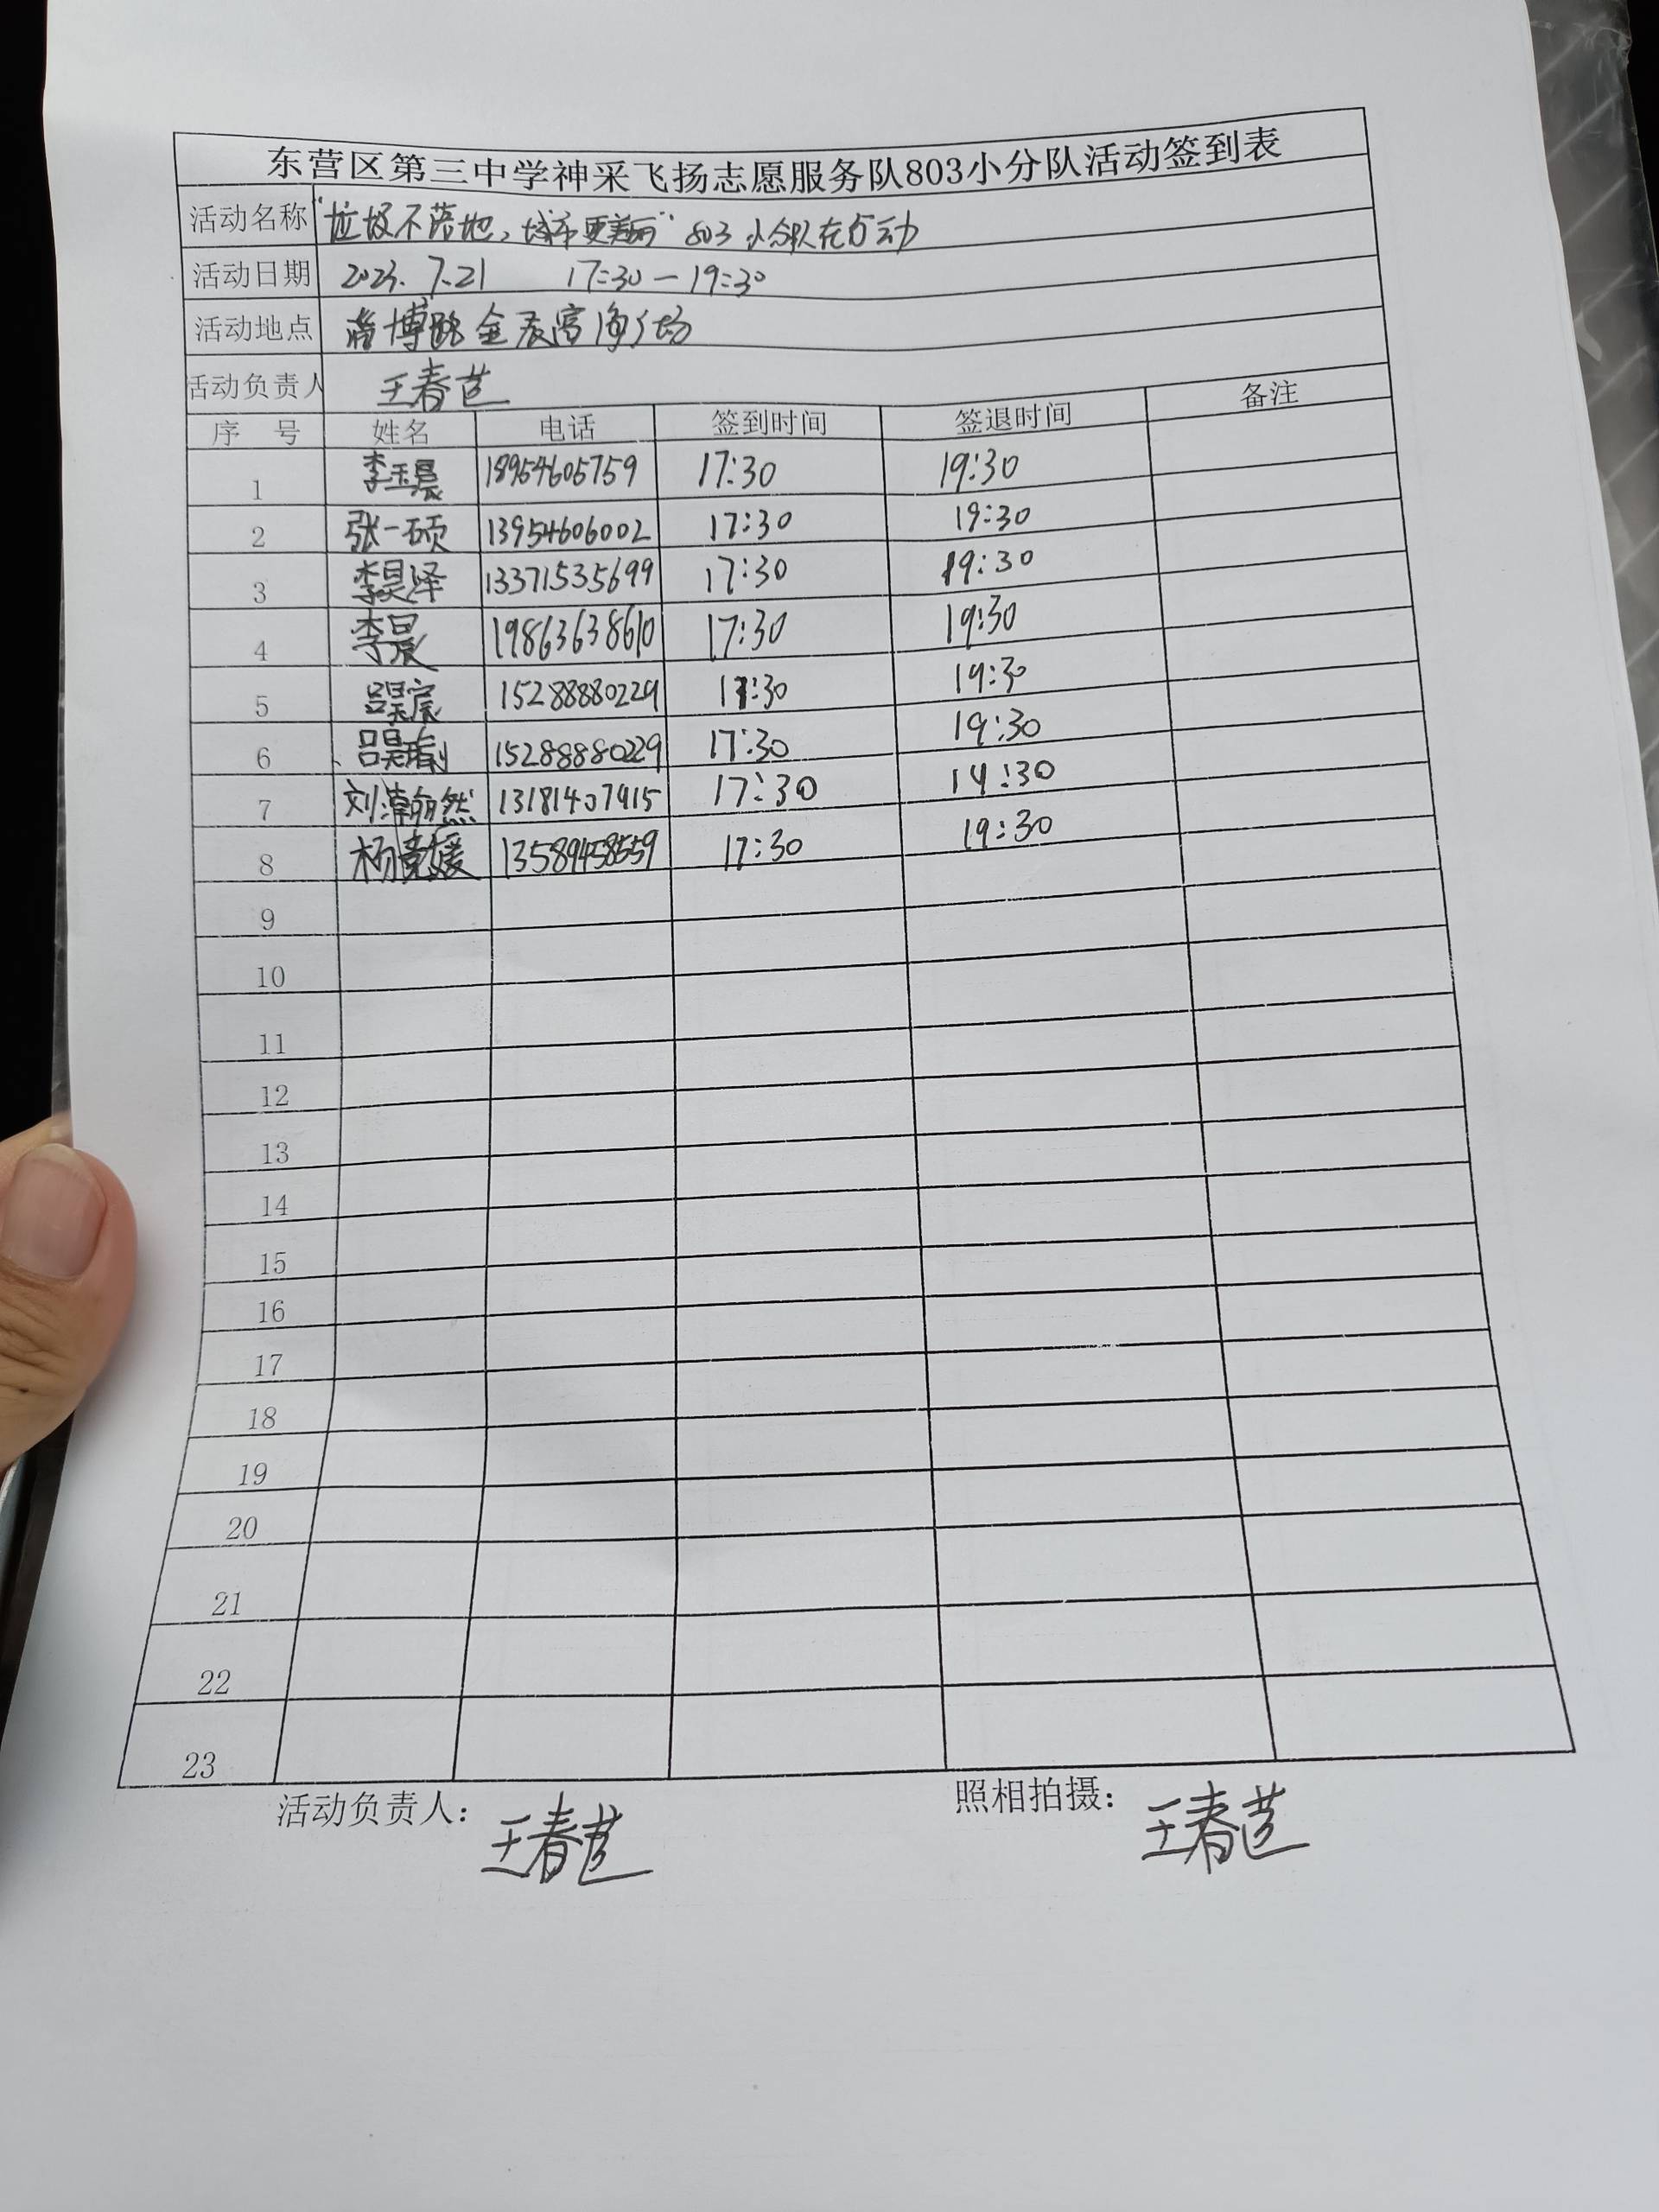 东营区第三中学神采飞扬志愿服务队803小分队活动签到表
活动名称 "垃圾不落地,城市更美丽" 803小分队在行动
活动日期 2023.7.21 17:30—19:30
活动地点 淄博路金辰富海广场
活动负责人 王春芭
序 号 姓名 电话 签到时间 签退时间 备注
1 李玉晨 18954605759 17:30 19:30
2 张一硕 13954606002 17:30 19:30
3 李昊泽 13371535699 17:30 19:30
4 李晨 19863638610 17:30 19:30
5 吕昊宸 15288880229 17:30 19:30
6 吕昊 15288880229 17:30 19:30
7 刘瀚然 13181407915 17:30 19:30
8 杨媛 13589458559 17:30 19:30
9
10
11
12
13
14
15
16
17
18
19
20
21
22
23
活动负责人: 王春芭 照相拍摄: 王春芭